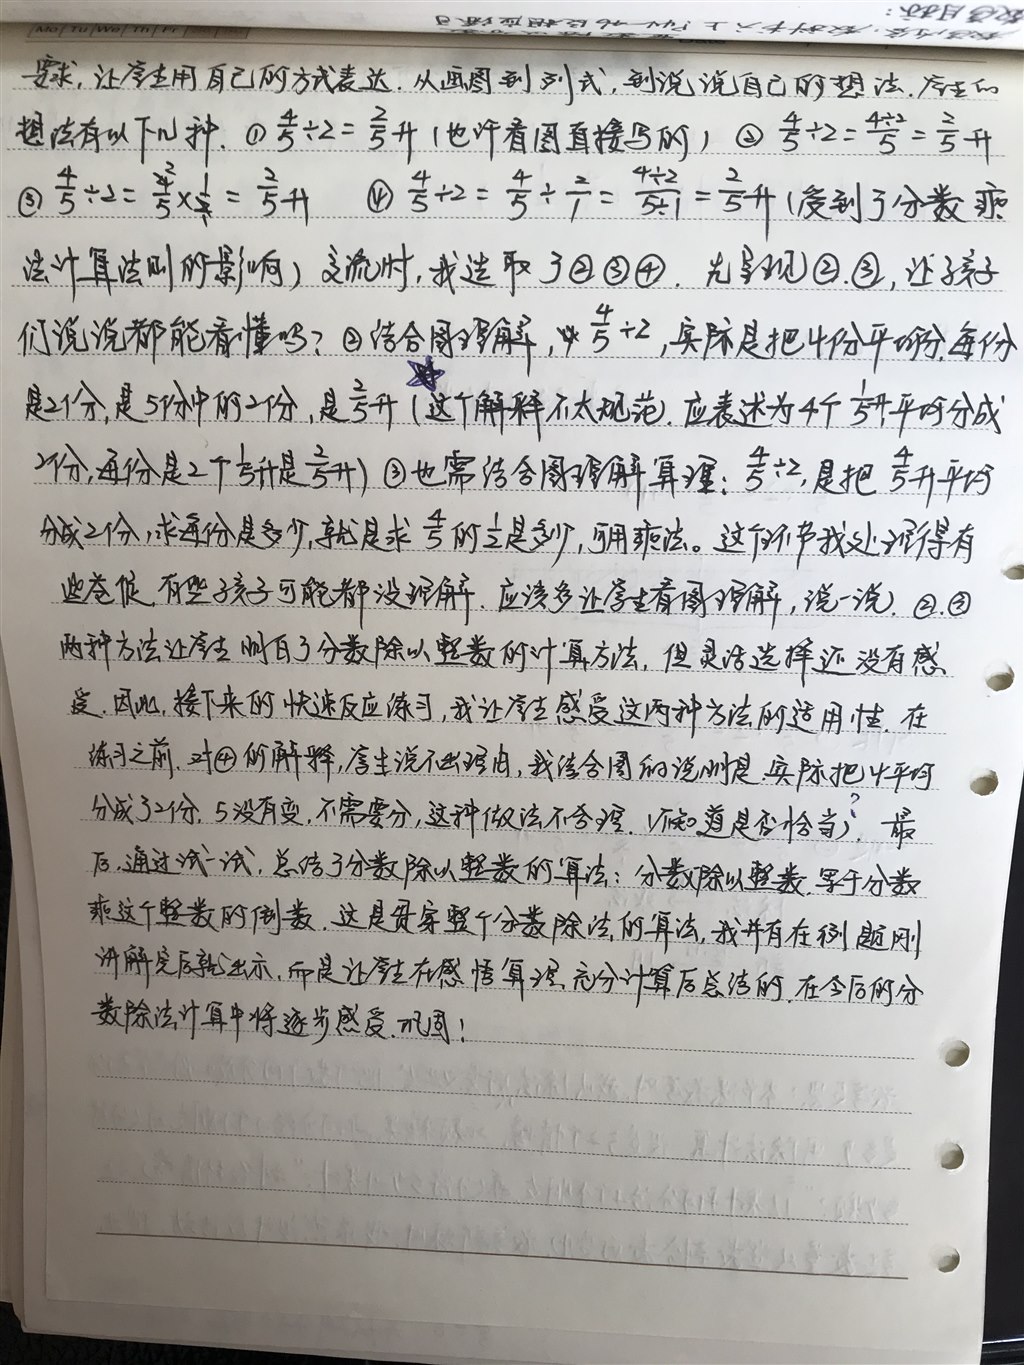 Mo Tu We Th Fr
要求,让学生用自己的方式表达.从画图到列式,到说说自己的想法.学生的
想法有以下几种. ① 4/5÷2=2/5升(也许看图直接写的) ② 4/5÷2=4÷2/5=2/5升
③ 4/5÷2=4/5×1/2=2/5升 ④ 4/5÷2=4/5÷2/1=4÷2/5÷1=2/5升(受到了分数乘
法计算法则的影响)交流时,我选取了②③④. 先呈现②.③,让孩子
们说说都能看懂吗?②结合图理解, 4/5÷2,实际是把4份平均分,每份
是2份,是5份中的2份,是2/5升(这个解释不太规范).应表述为4个1/5升平均分成
2份,每份是2个1/5升是2/5升)③也需结合图理解算理:4/5÷2,是把4/5升平均
分成2份,求每份是多少,就是求4/5的1/2是多少,可用乘法。这个环节我处理得有
些仓促.有些孩子可能都没理解.应该多让学生看图理解,说一说).②.③
两种方法让学生明白了分数除以整数的计算方法,但灵活选择还没有感
受.因此,接下来的快速反应练习,我让学生感受这两种方法的适用性.在
练习之前.对④的解释,学生说不出理由,我结合图的说明是.实际把4平均
分成了2份,5没有变,不需要分,这种做法不合理.(不知道是否恰当)?. 最
后,通过试一试,总结了分数除以整数的算法:分数除以整数.等于分数
乘这个整数的倒数.这是贯穿整个分数除法的算法,我并有在例题刚
讲解完后就出示,而是让学生在感悟算理,充分计算后总结的.在今后的分
数除法计算中将逐步感受.巩固!